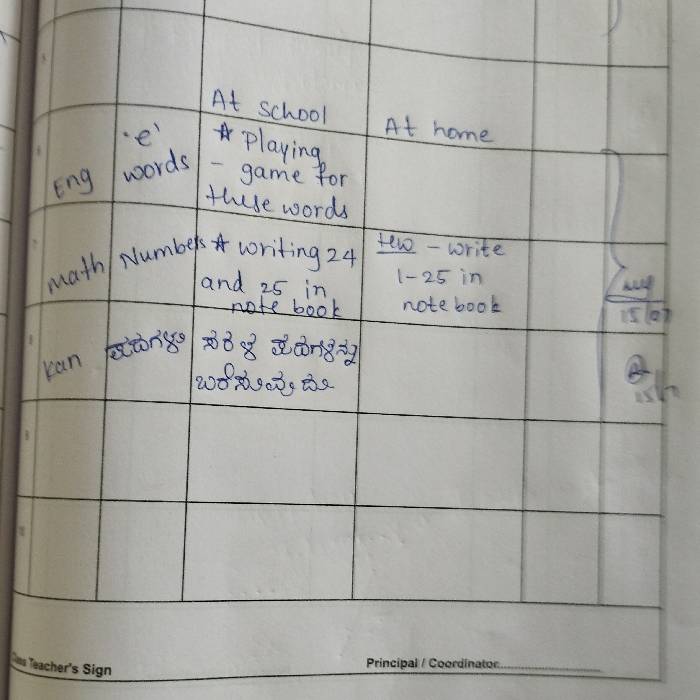 At school
At home
Eng
'e' words
* Playing
- game for
these words
Math
Numbers
* writing 24
and 25 in
note book
HW - write
1-25 in
note book
15/07
Kan
ಪದಗಳು
ಸರಳ ಪದಗಳನ್ನು
ಬರೆಸುವುದು
Teacher's Sign
Principal / Coordinator